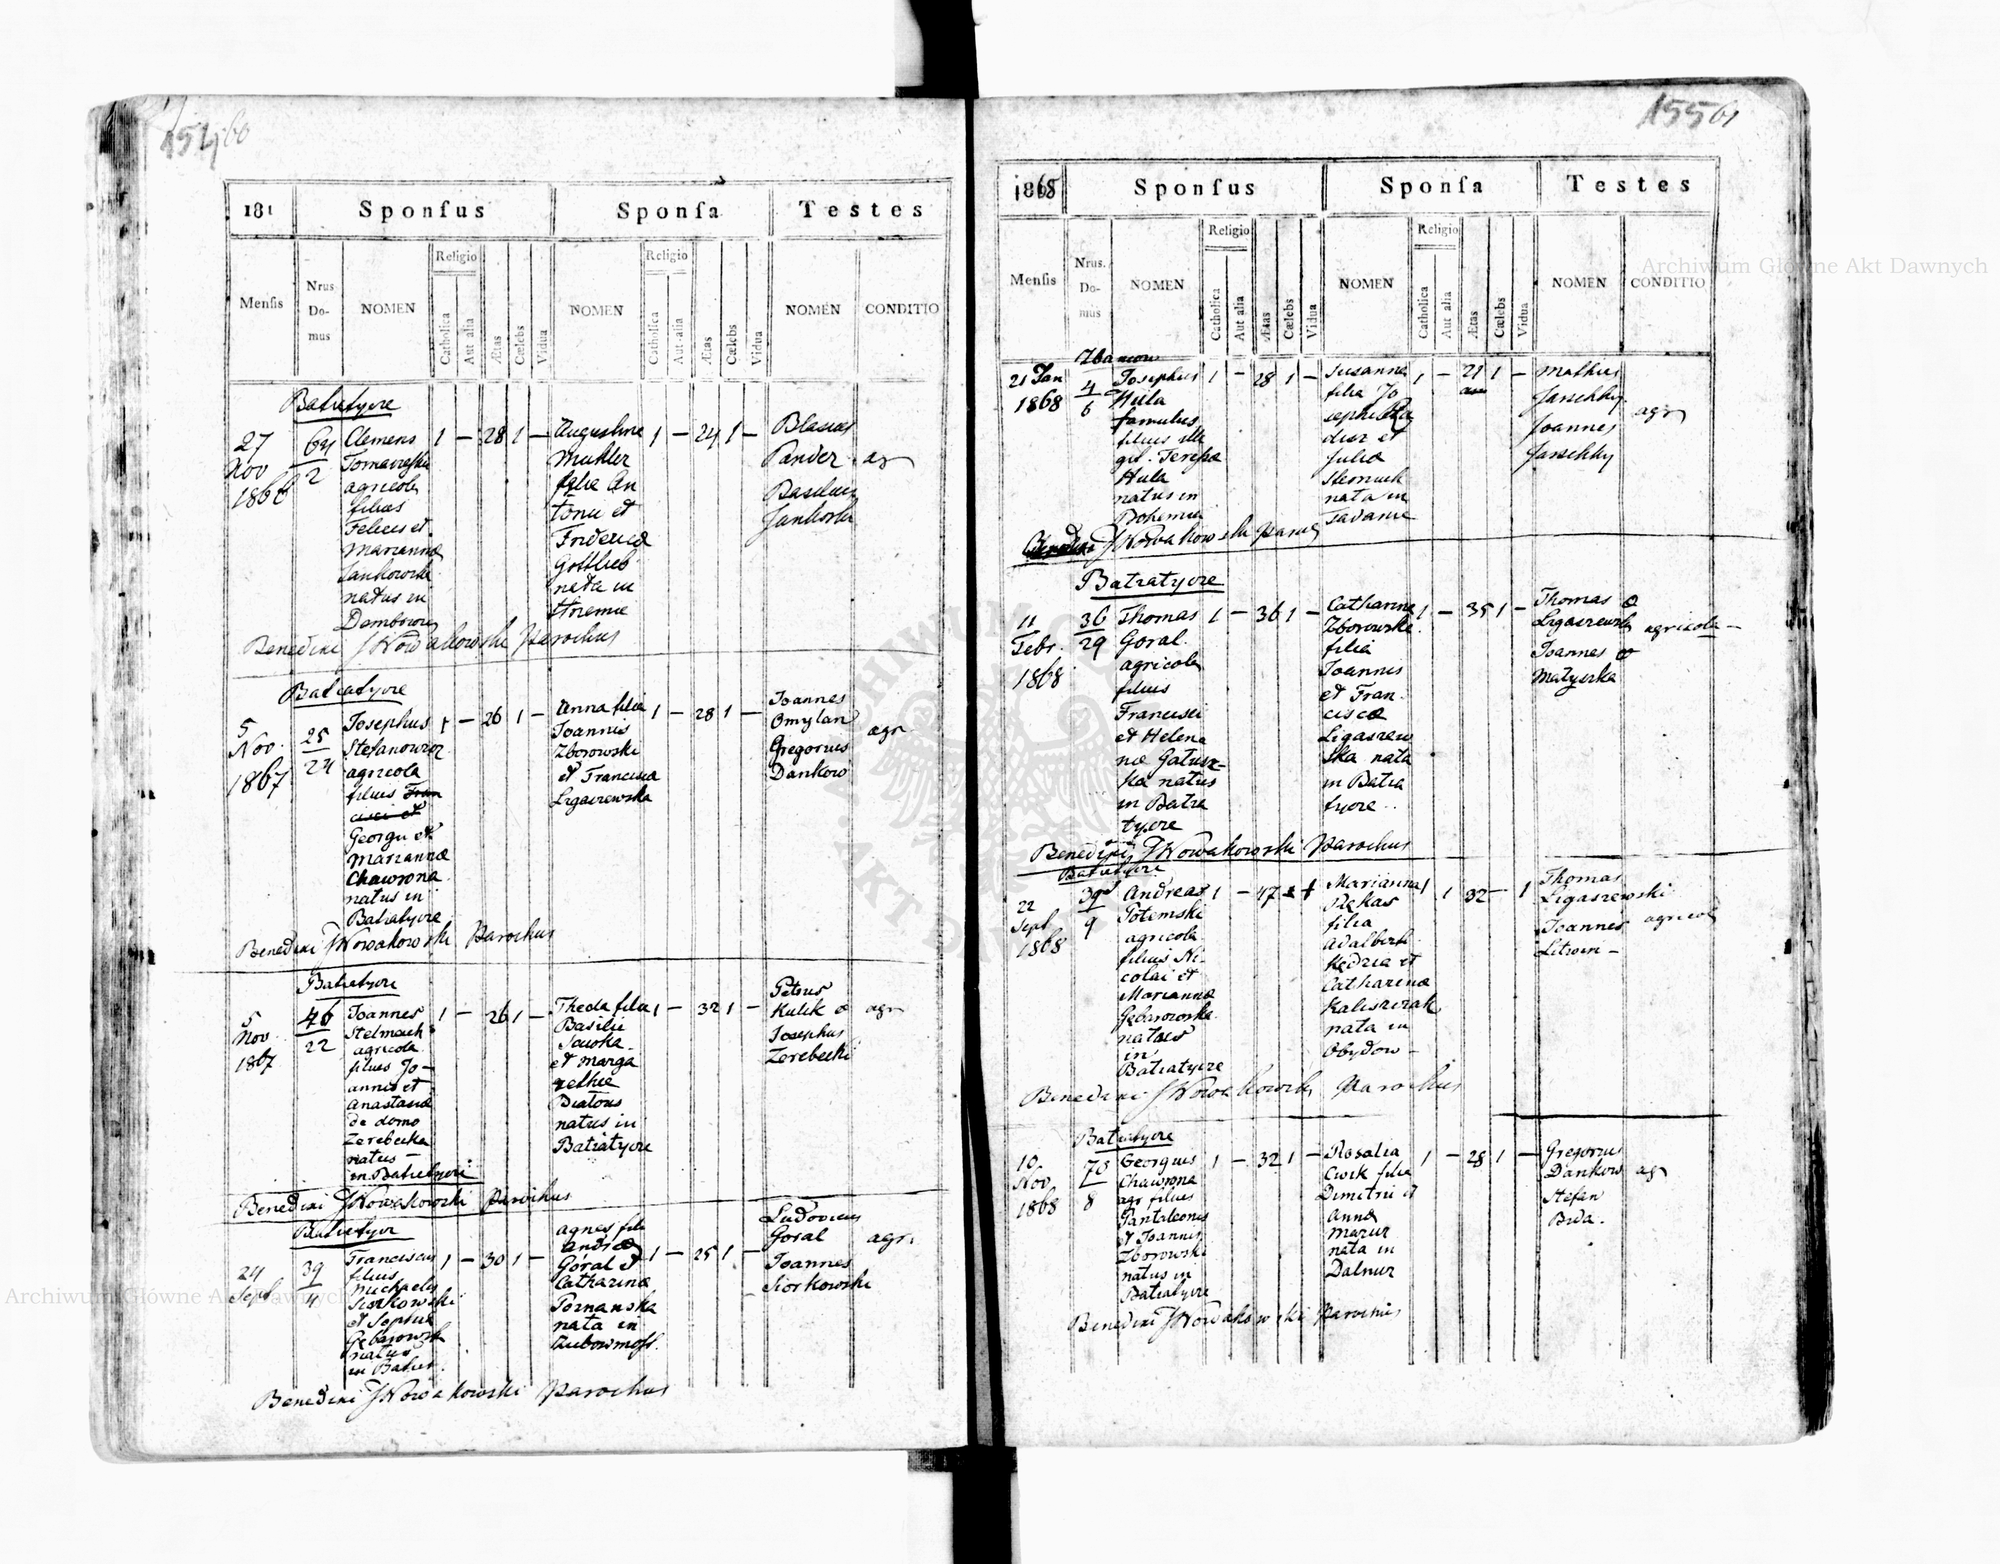 154 60
181 Sponsus Sponsa Testes
Mensis Nrus Domus NOMEN Religio Catholica Aut alia Ætas Cælebs Vidua NOMEN Religio Catholica Aut alia Ætas Cælebs Vidua NOMEN CONDITIO
Batiatycze
27 Nov
64
2
Clemens
agricola
filius
Felicis et
Mariannæ
Jankowska
natus in
1 — 28 1 —
Augustina
Muhler
filia An
tonii et
Fridericæ
Gottlieb
nata in
1 — 24 1 —
Blasius
Pander
Basilius
Benedixi J Nowakowski Parochus
Batiatycze
5
Nov.
1867
25
24
Josephus
agricola
filius Fran
cisci et
Georgii et
Mariannæ
Chawrona
natus in
Batiatycze
1 — 26 1 —
Anna filia
Joannis
Zborowski
et Francisca
Ligaszewska
1 — 28 1 —
Joannes
Omylan
Gregorius
Dankow
agr.
Benedixi J Nowakowski Parochus
Batiatycze
5
Nov
1867
46
22
Joannes
Stelmach
agricola
filius Jo-
annis et
Anastasiæ
de domo
Zerebecka
natus
in Batiatycze
1 — 26 1 —
Thecla filia
Basilii
et Marga
rethæ
natus in
Batiatycze
1 — 32 1 —
Petrus
Kulik &
Josephus
Zerebecki
agr
Benedixi J Nowakowski Parochus
Batiatycze
24
Sept
39
4
Franciscus
filius
Michaelis
Siorkowski
et Sophia
natus
in Batiat.
1 — 30 1 —
Agnes filia
Andreæ
Góral et
Catharinæ
Poznanska
nata in
1 — 25 1 —
Ludovicus
Goral
Joannes
Siorkowski
agr.
Benedixi J Nowakowski Parochus
155 61
1868 Sponsus Sponsa Testes
Mensis Nrus. Domus NOMEN Religio Catholica Aut alia Ætas Cælebs Vidua NOMEN Religio Catholica Aut alia Ætas Cælebs Vidua NOMEN CONDITIO
21 Jan
1868
4
6
Josephus
Hula
famulus
filius ille
git. Teresæ
Hula
natus in
Bohemia
1 — 28 1 —
Susanna
filia Jo
sephi
et
Julia
nata in
1 — 21 1 —
Mathias
Jaschky
Joannes
Jaschky
agr
Benedixi J Nowakowski Paroch
Batiatycze
11
Febr.
1868
36
29
Thomas
Goral
agricola
filius
Francisci
et Helena
natus
in Batia
tycze
1 — 36 1 —
Catharina
Zborowska
filia
Joannis
et Fran-
ciscæ
Ligaszew
ska nata
in Batia
tycze
1 — 35 1 —
Thomas &
Ligaszewski
Joannes &
Matyszka
agricola —
Benedixi J Nowakowski Parochus
Batiatycze
22
Sept
1868
39
9
Andreas
Potemski
agricola
filius Ni-
colai et
Mariannæ
Gębarowska
natus
in
Batiatycze
1 — 47
Marianna
Rekas
filia
Adalberti
Kędzia et
Catharinæ
nata in
Obydow
1 1 32 — 1
Thomas
Ligaszewski
Joannes
Litwin —
agricola
Benedixi J Nowakowski Parochus
Batiatycze
10
Nov
1868
70
8
Georgius
Chawrona
agr filius
Pantaleonis
et Joannis
Zborowski
natus in
Batiatycze
1 — 32 1 —
Rosalia
Cwik filia
Dimitrii et
Anna
Mazur
nata in
Dalnicz
1 — 28 1 —
Gregorius
Dankow
Stefan
Bida.
agr
Benedixi J Nowakowski Parochus
Archiwum Główne Akt Dawnych
Archiwum Główne Akt Dawnych